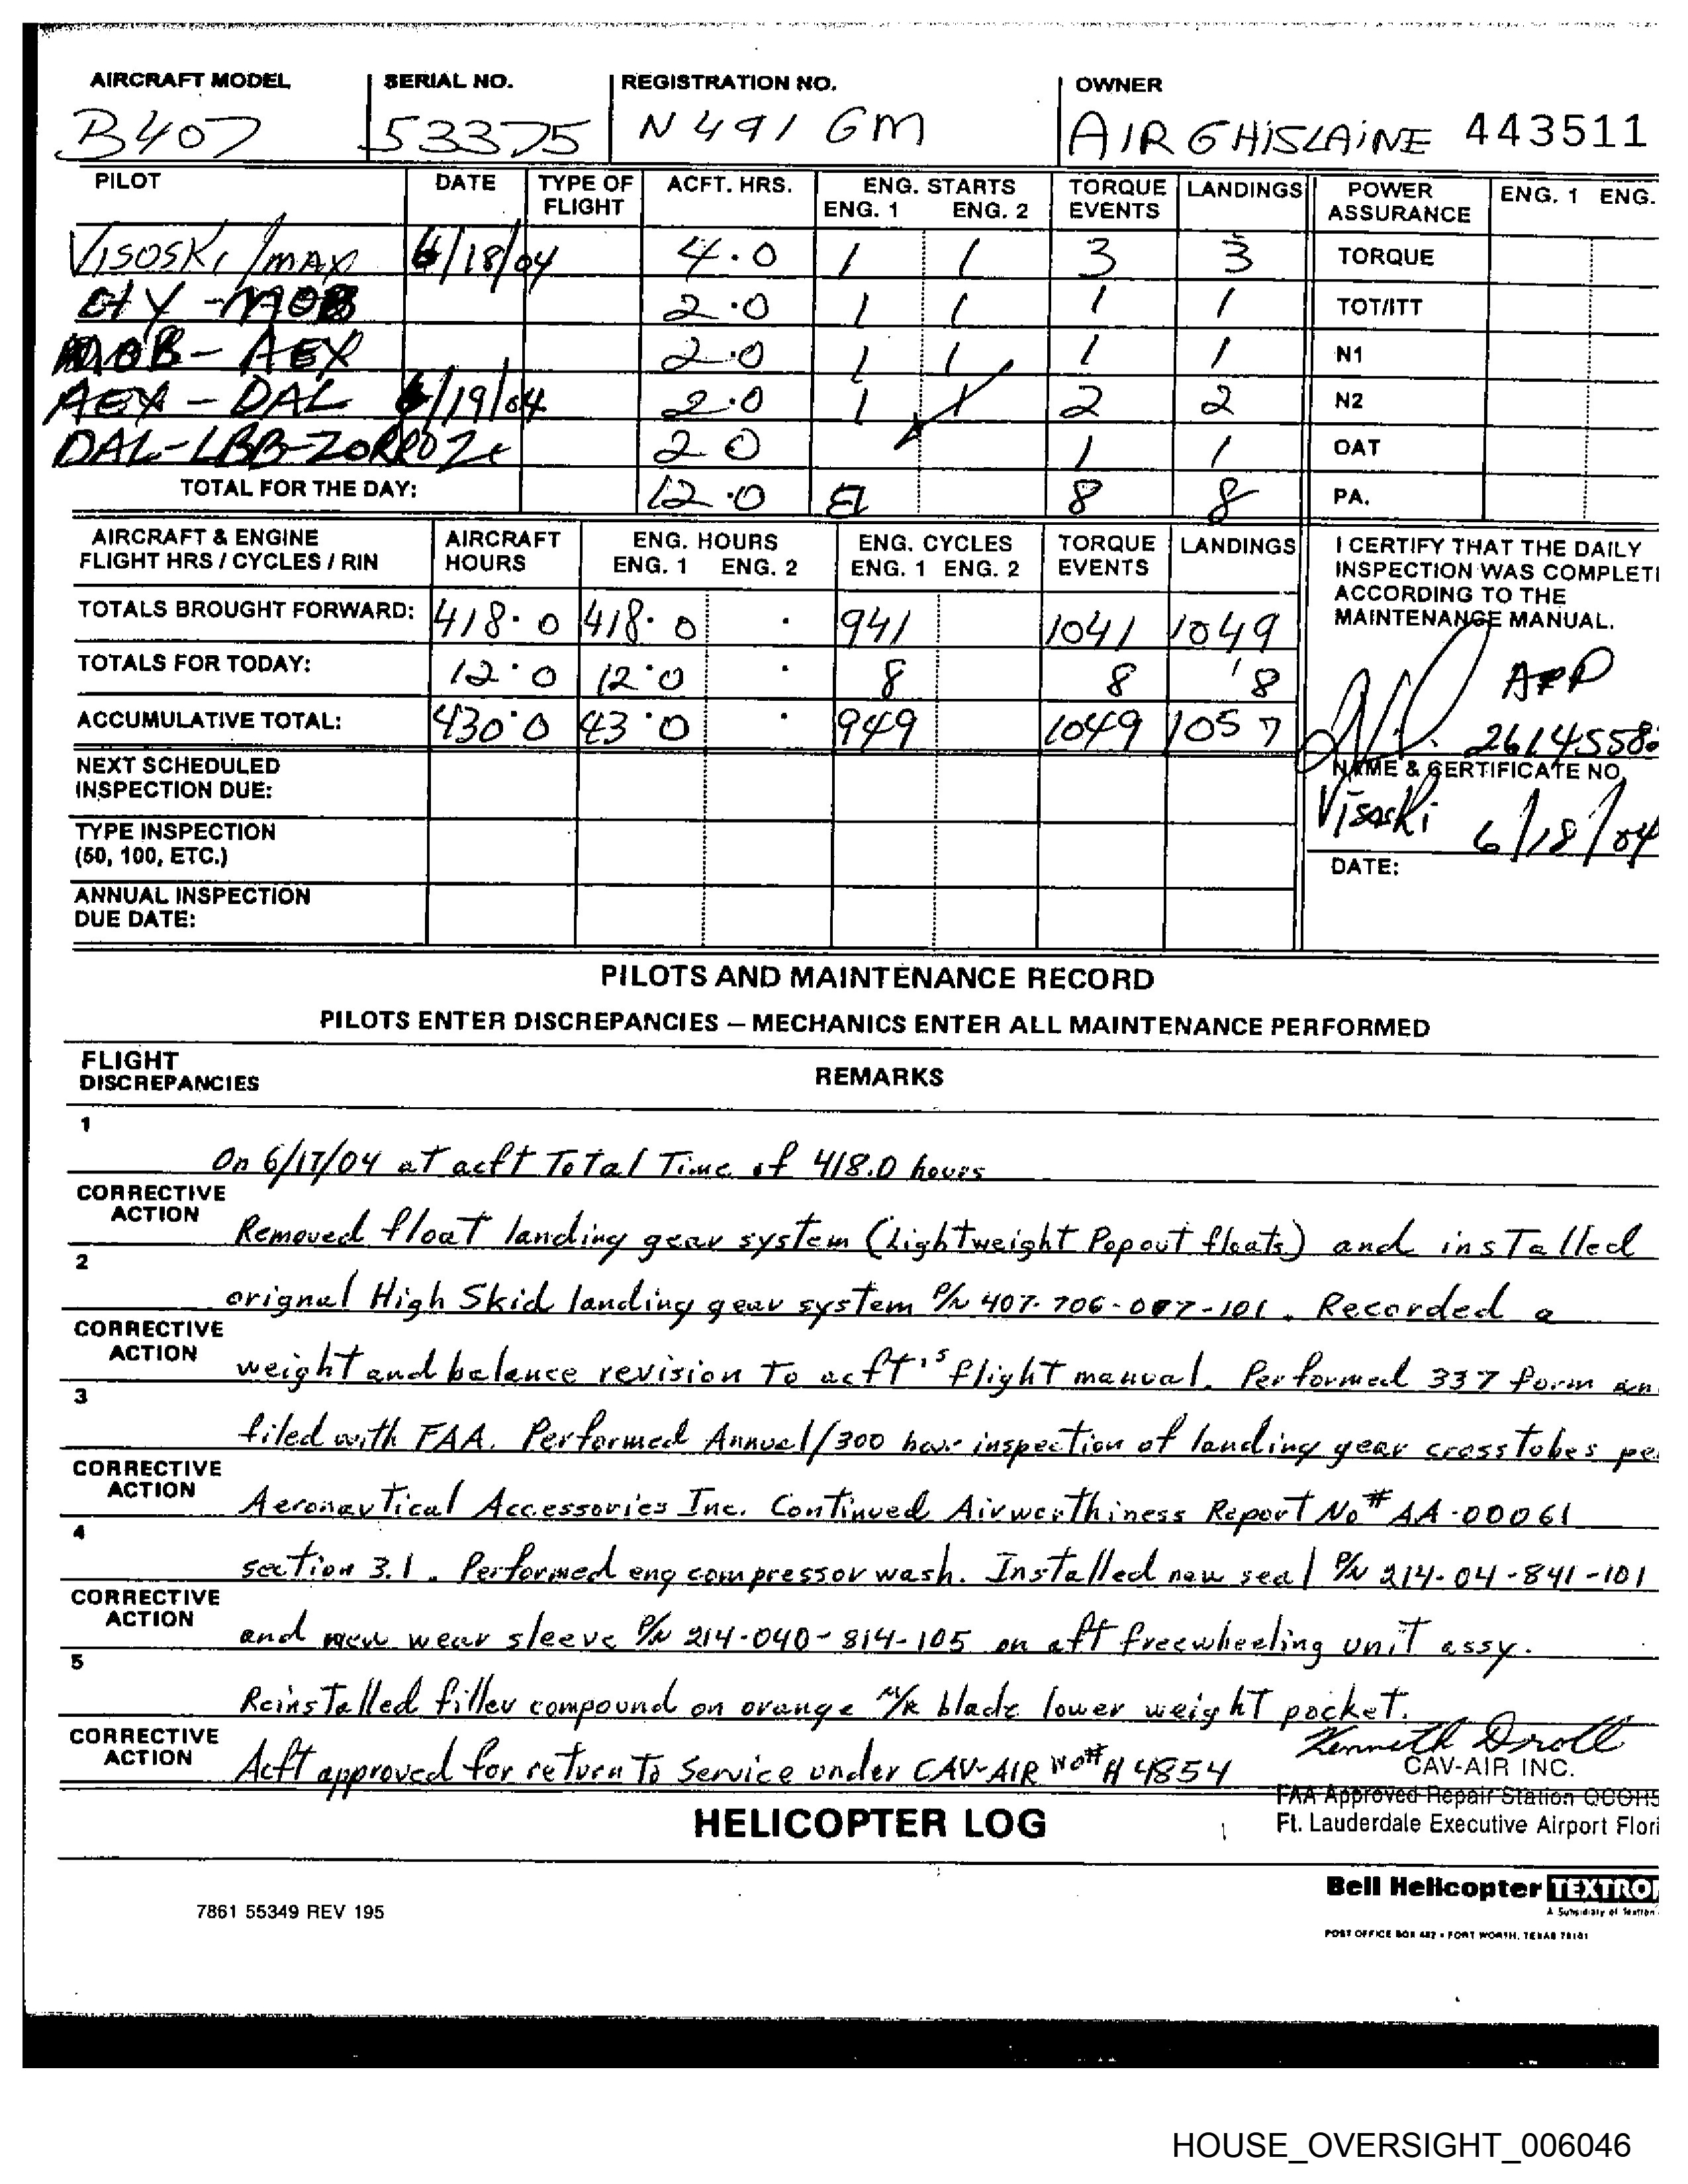 AIRCRAFT MODEL SERIAL NO. REGISTRATION NO. OWNER
B407 53375 N491GM AIR GHISLAINE 443511
PILOT DATE TYPE OF FLIGHT ACFT. HRS. ENG. STARTS ENG. 1 ENG. 2 TORQUE EVENTS LANDINGS POWER ASSURANCE ENG. 1 ENG.
VISOSKI/MAX 6/18/04 4.0 1 1 3 3 TORQUE
-MOB 2.0 1 1 1 1 TOT/ITT
MOB-AEX 2.0 1 1 1 1 N1
AEX-DAL 6/19/04 2.0 1 1 2 2 N2
DAL-LBB-ZORRO 2 0 1 1 OAT
TOTAL FOR THE DAY: 12.0 8 8 PA.
AIRCRAFT & ENGINE FLIGHT HRS / CYCLES / RIN AIRCRAFT HOURS ENG. HOURS ENG. 1 ENG. 2 ENG. CYCLES ENG. 1 ENG. 2 TORQUE EVENTS LANDINGS
TOTALS BROUGHT FORWARD: 418.0 418.0 . 941 1041 1049
TOTALS FOR TODAY: 12.0 12.0 . 8 8 8
ACCUMULATIVE TOTAL: 430.0 43.0 . 949 1049 1057
NEXT SCHEDULED INSPECTION DUE:
TYPE INSPECTION (50, 100, ETC.)
ANNUAL INSPECTION DUE DATE:
I CERTIFY THAT THE DAILY
INSPECTION WAS COMPLET
ACCORDING TO THE
MAINTENANCE MANUAL.
2614558
NAME & CERTIFICATE NO.
Visoski 6/18/04
DATE:
PILOTS AND MAINTENANCE RECORD
PILOTS ENTER DISCREPANCIES – MECHANICS ENTER ALL MAINTENANCE PERFORMED
FLIGHT DISCREPANCIES REMARKS
1
On 6/17/04 at acft Total Time of 418.0 hours
CORRECTIVE ACTION
Removed float landing gear system (Lightweight Popout floats) and installed
2
orignal High Skid landing gear system P/N 407-706-007-101. Recorded a
CORRECTIVE ACTION
weight and balance revision To acft's flight manual. Performed 337 form an
3
filed with FAA. Performed Annual/300 hour inspection of landing gear crosstubes pe
CORRECTIVE ACTION
Aeronautical Accessories Inc. Continued Airworthiness Report No# AA-00061
4
section 3.1. Performed eng compressor wash. Installed new seal P/N 214-04-841-101
CORRECTIVE ACTION
and new wear sleeve P/N 214-040-814-105 on aft freewheeling unit assy.
5
Reinstalled filler compound on orange M/R blade lower weight pocket.
CORRECTIVE ACTION
Acft approved for return To Service under CAV-AIR WO# A4854
Kenneth Droll
CAV-AIR INC.
FAA Approved Repair Station
Ft. Lauderdale Executive Airport Flori
HELICOPTER LOG
Bell Helicopter TEXTRO
A Subsidiary of Textron
POST OFFICE BOX 482 • FORT WORTH, TEXAS 76101
7861 55349 REV 195
HOUSE_OVERSIGHT_006046